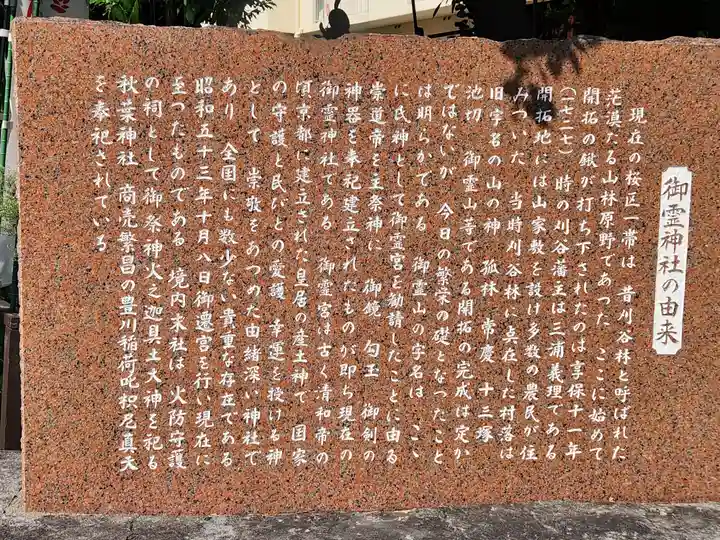 御霊神社の由来
現在の桜区一帯は 昔刈谷林と呼ばれた
茫漠たる山林原野であった ここに始めて
開拓の鍬が打ち下されたのは享保十一年
時の刈谷藩主は三浦義理である
開拓地には山家数を設け多数の農民が住
みついた 当時刈谷林に点在した村落は
旧字名の山の神 孤林 常慶 十三塚
池切 御霊山等である開拓の完成は定か
ではないが 今日の繁栄の礎となったこと
は明らかである 御霊山の字名は ここ
に氏神として御霊宮を勧請したことに由る
崇道帝を主祭神に 御鏡 勾玉 御剣の
神器を奉祀建立されたものが即ち現在の
御霊神社である 御霊宮は古く清和帝の
頃京都に建立された皇居の産土神で 国家
の守護と民などの愛護 幸運を授ける神
として 崇敬をあつめた由緒深い神社で
あり 全国にも数少ない貴重な存在である
昭和五十三年十月八日御遷宮を行い現在に
至ったものである 境内末社は 火防守護
の祠として御祭神火之迦具土大神を祀る
秋葉神社 商売繁昌の豊川稲荷吒枳尼真天
を奉祀されている